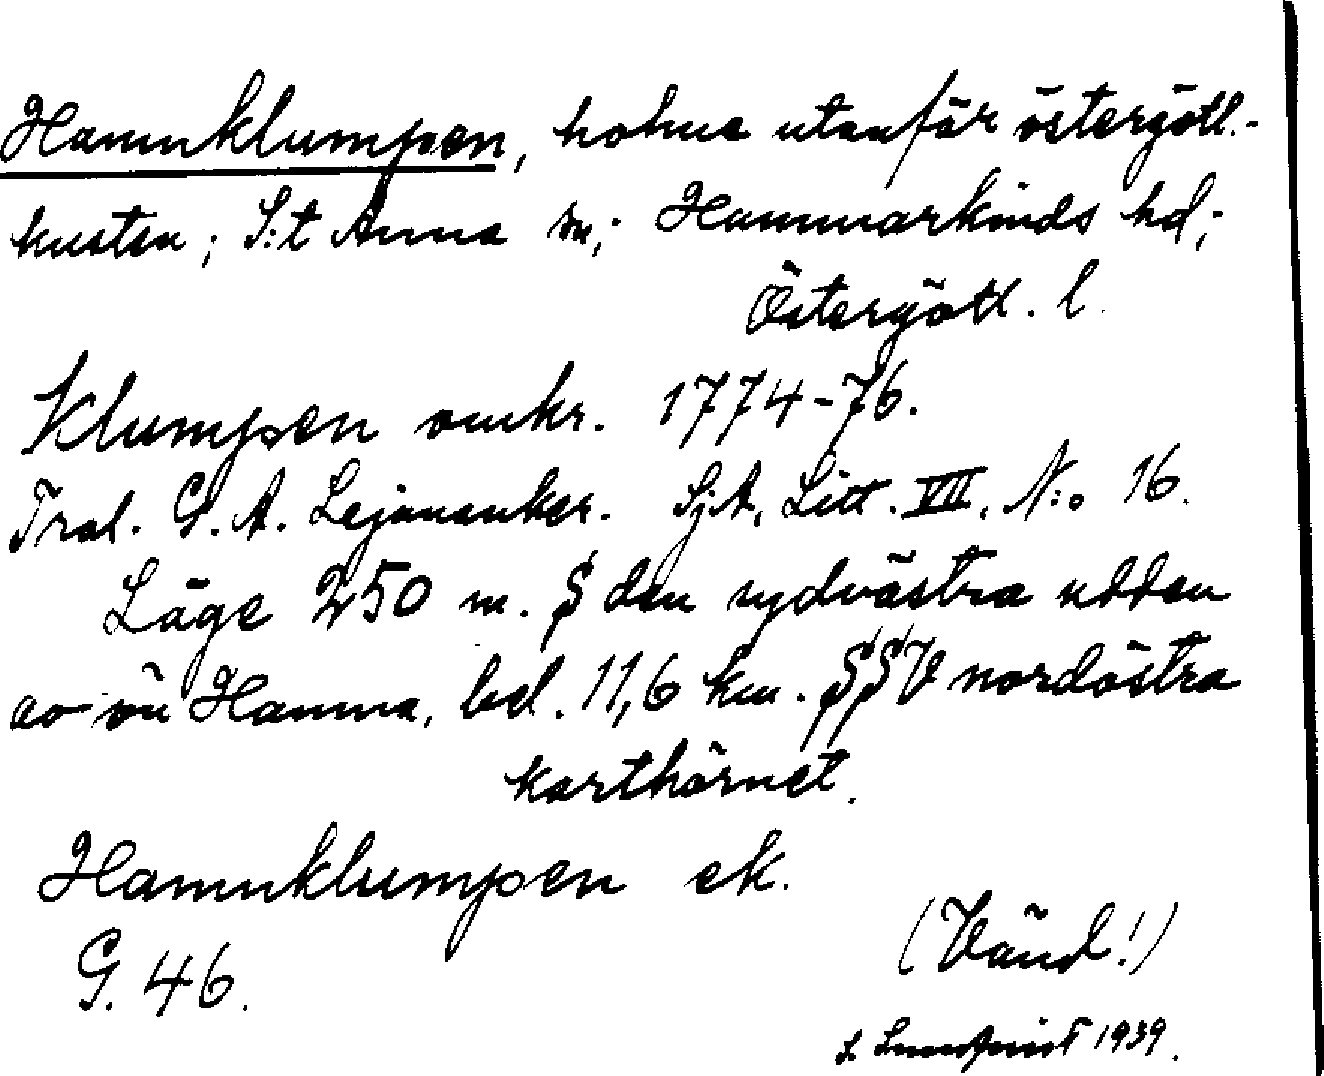 Hamnklumpen, holme utanför östergötl.-
kusten; S:t Anna sn; Hammarkinds hd;
Östergötl. l.
Klumpen omkr. 1774-76.
Trol. G. A. Lejonanker. Sj.A. Litt. VII. N:o 16.
Läge 250 m. S den sydvästra udden
av ön Hamna, bel. 11,6 km. SSV nordöstra
karthörnet.
Hamnklumpen ek.
G. 46.
(Vänd!)
S. Lundquist 1939.